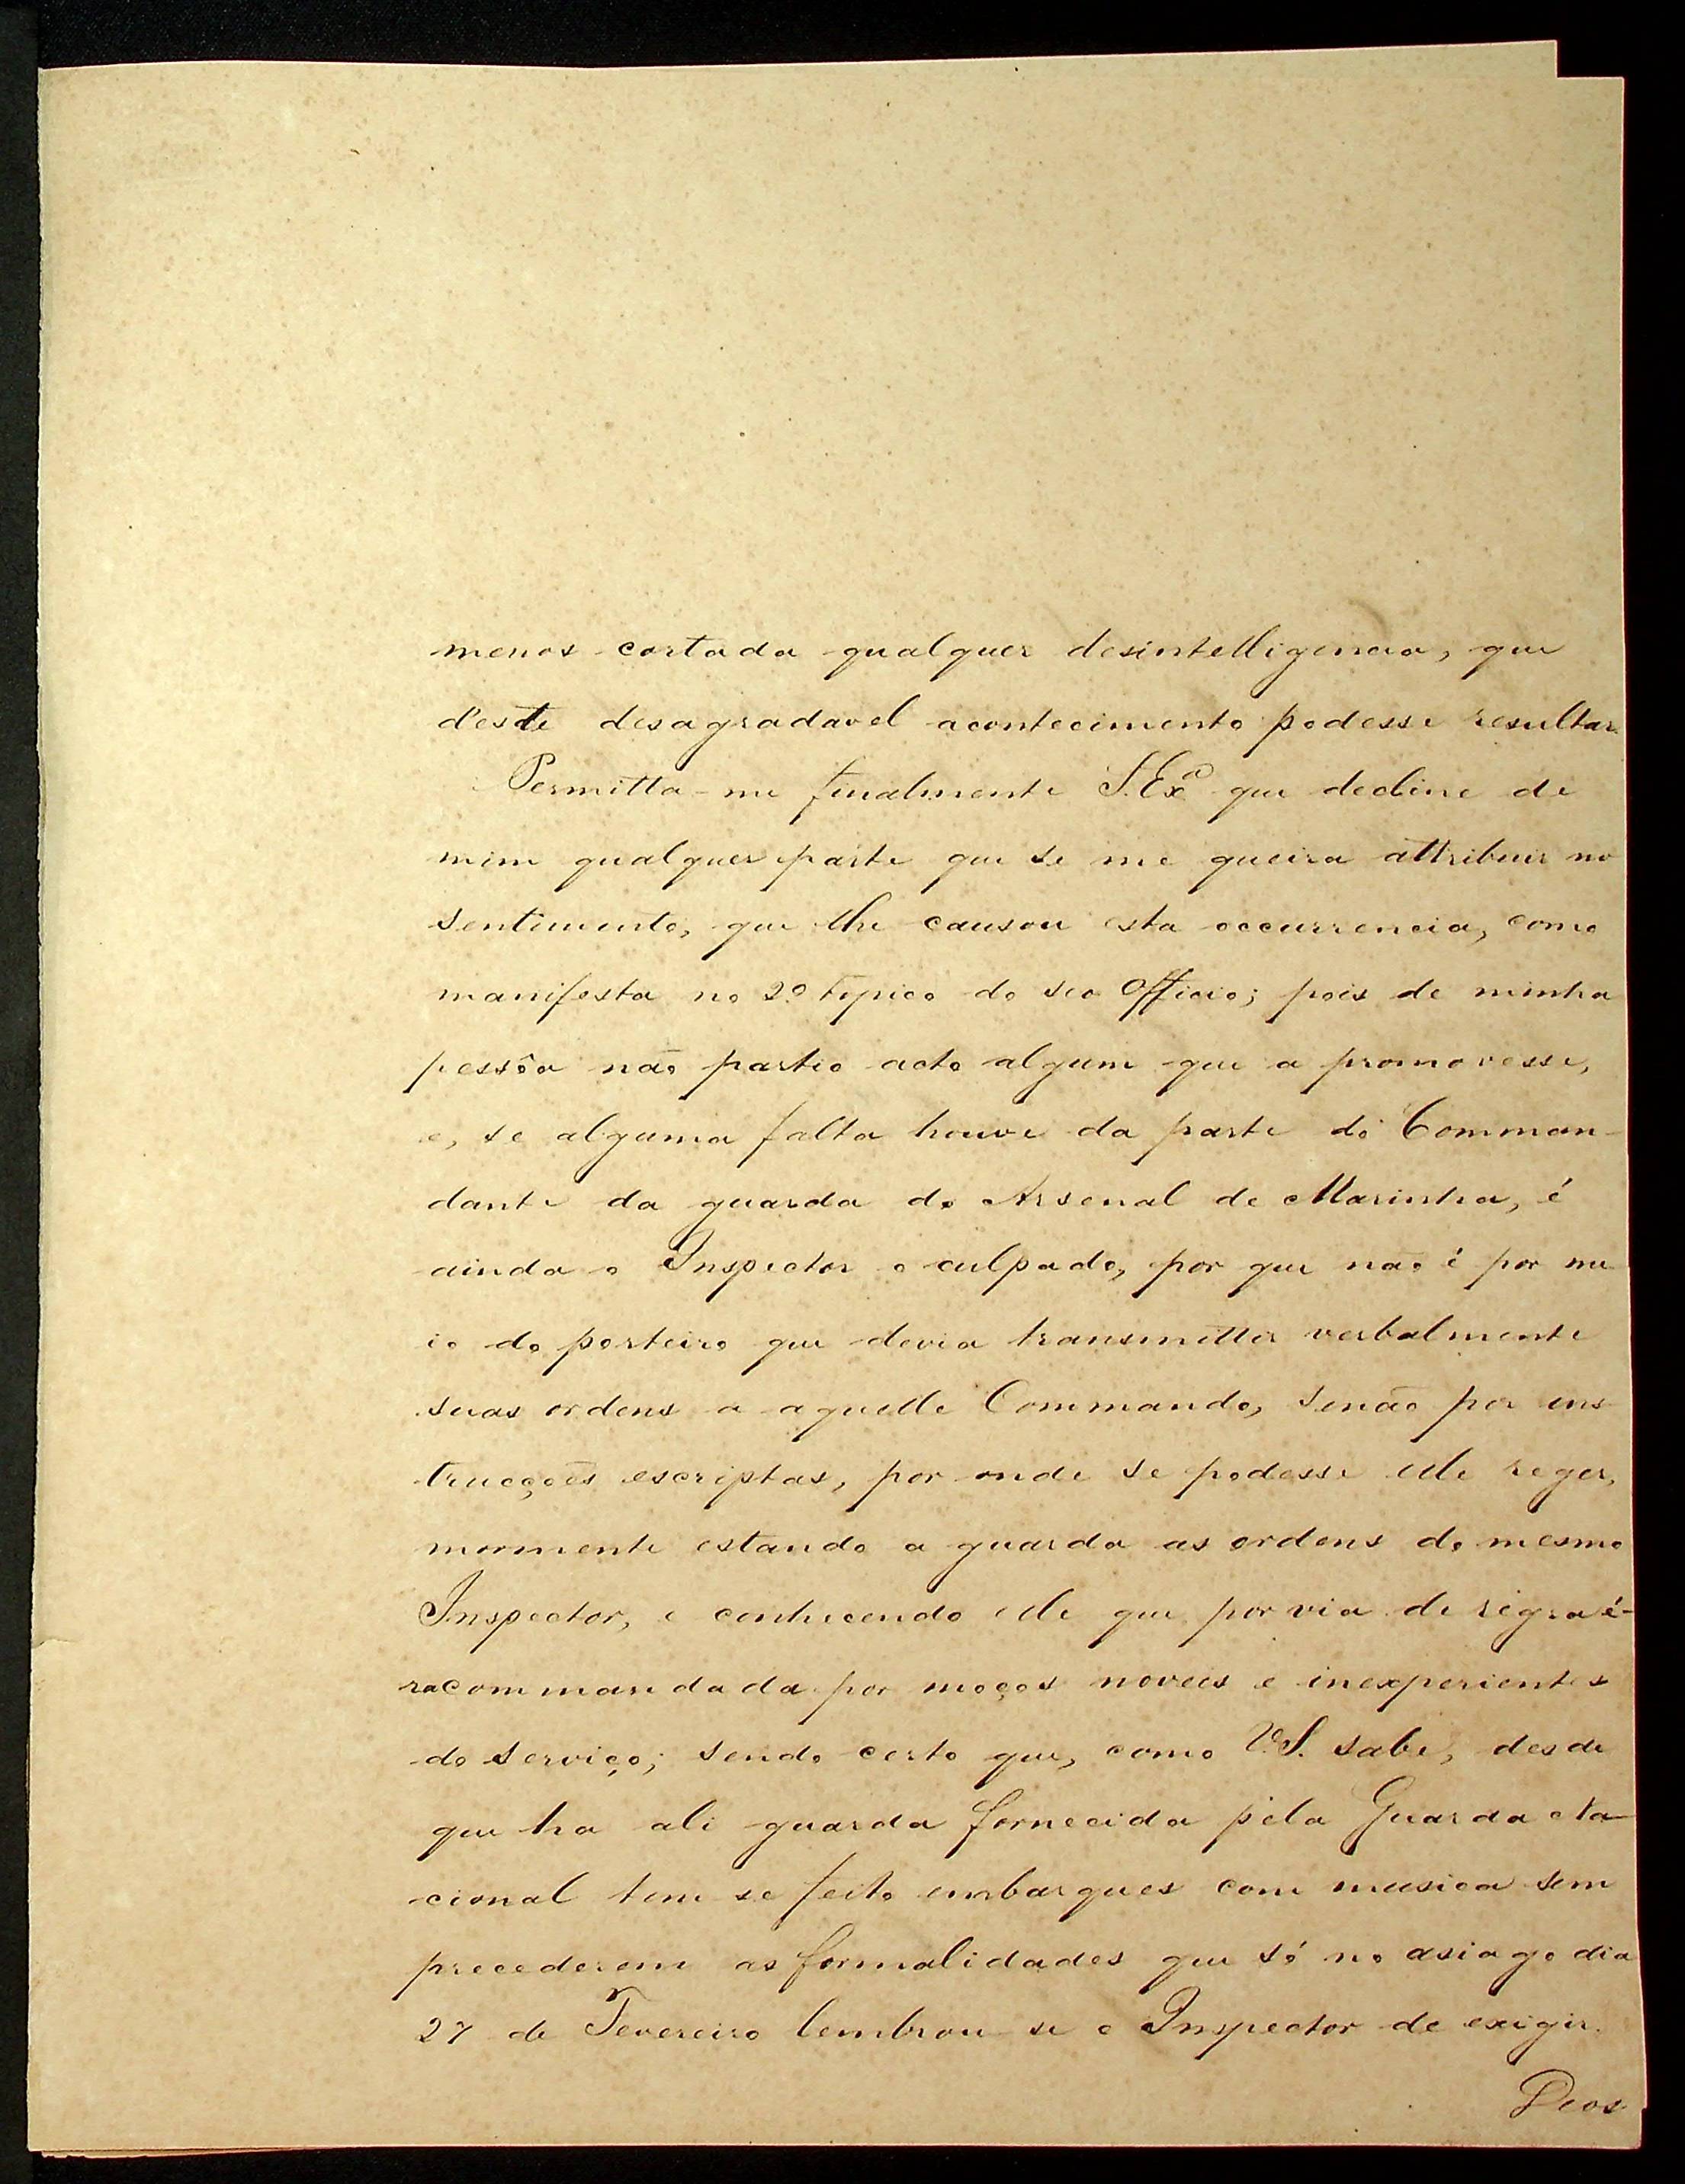 menos cortada qualquer desintelligencia, que
d'este desagradavel acontecimento podesse resultar.
Permitta-me finalmente S. Exª que decline de
mim qualquer parte que se me queira attribuir no
sentimento, que lhe causou esta occurrencia, como
manifesta no 2º topico do seo Officio; pois de minha
pessôa não partio acto algum que a promovesse,
e, se alguma falta houve da parte do Comman-
dante da guarda do Arsenal de Marinha, é
ainda o Inspector o culpado, por que não é por me
io do porteiro que devia transmittir verbalmente
suas ordens a aquelle Commando, senão por ins
trucções escriptas, por onde se podesse elle reger,
mormente estando a guarda as ordens do mesmo
Inspector, e conhecendo elle que por via de regra é-
racommandada por moços noveis e inexperientes
do serviço; sendo certo que, como V.S. sabe, desde
que ha ali guarda fornecida pela Guarda Na-
cional tem se feito embarques com musica sem
precederem as formalidades que só no asiago dia
27 de Fevereiro lembrou-se o Inspector de exigir.
Deos